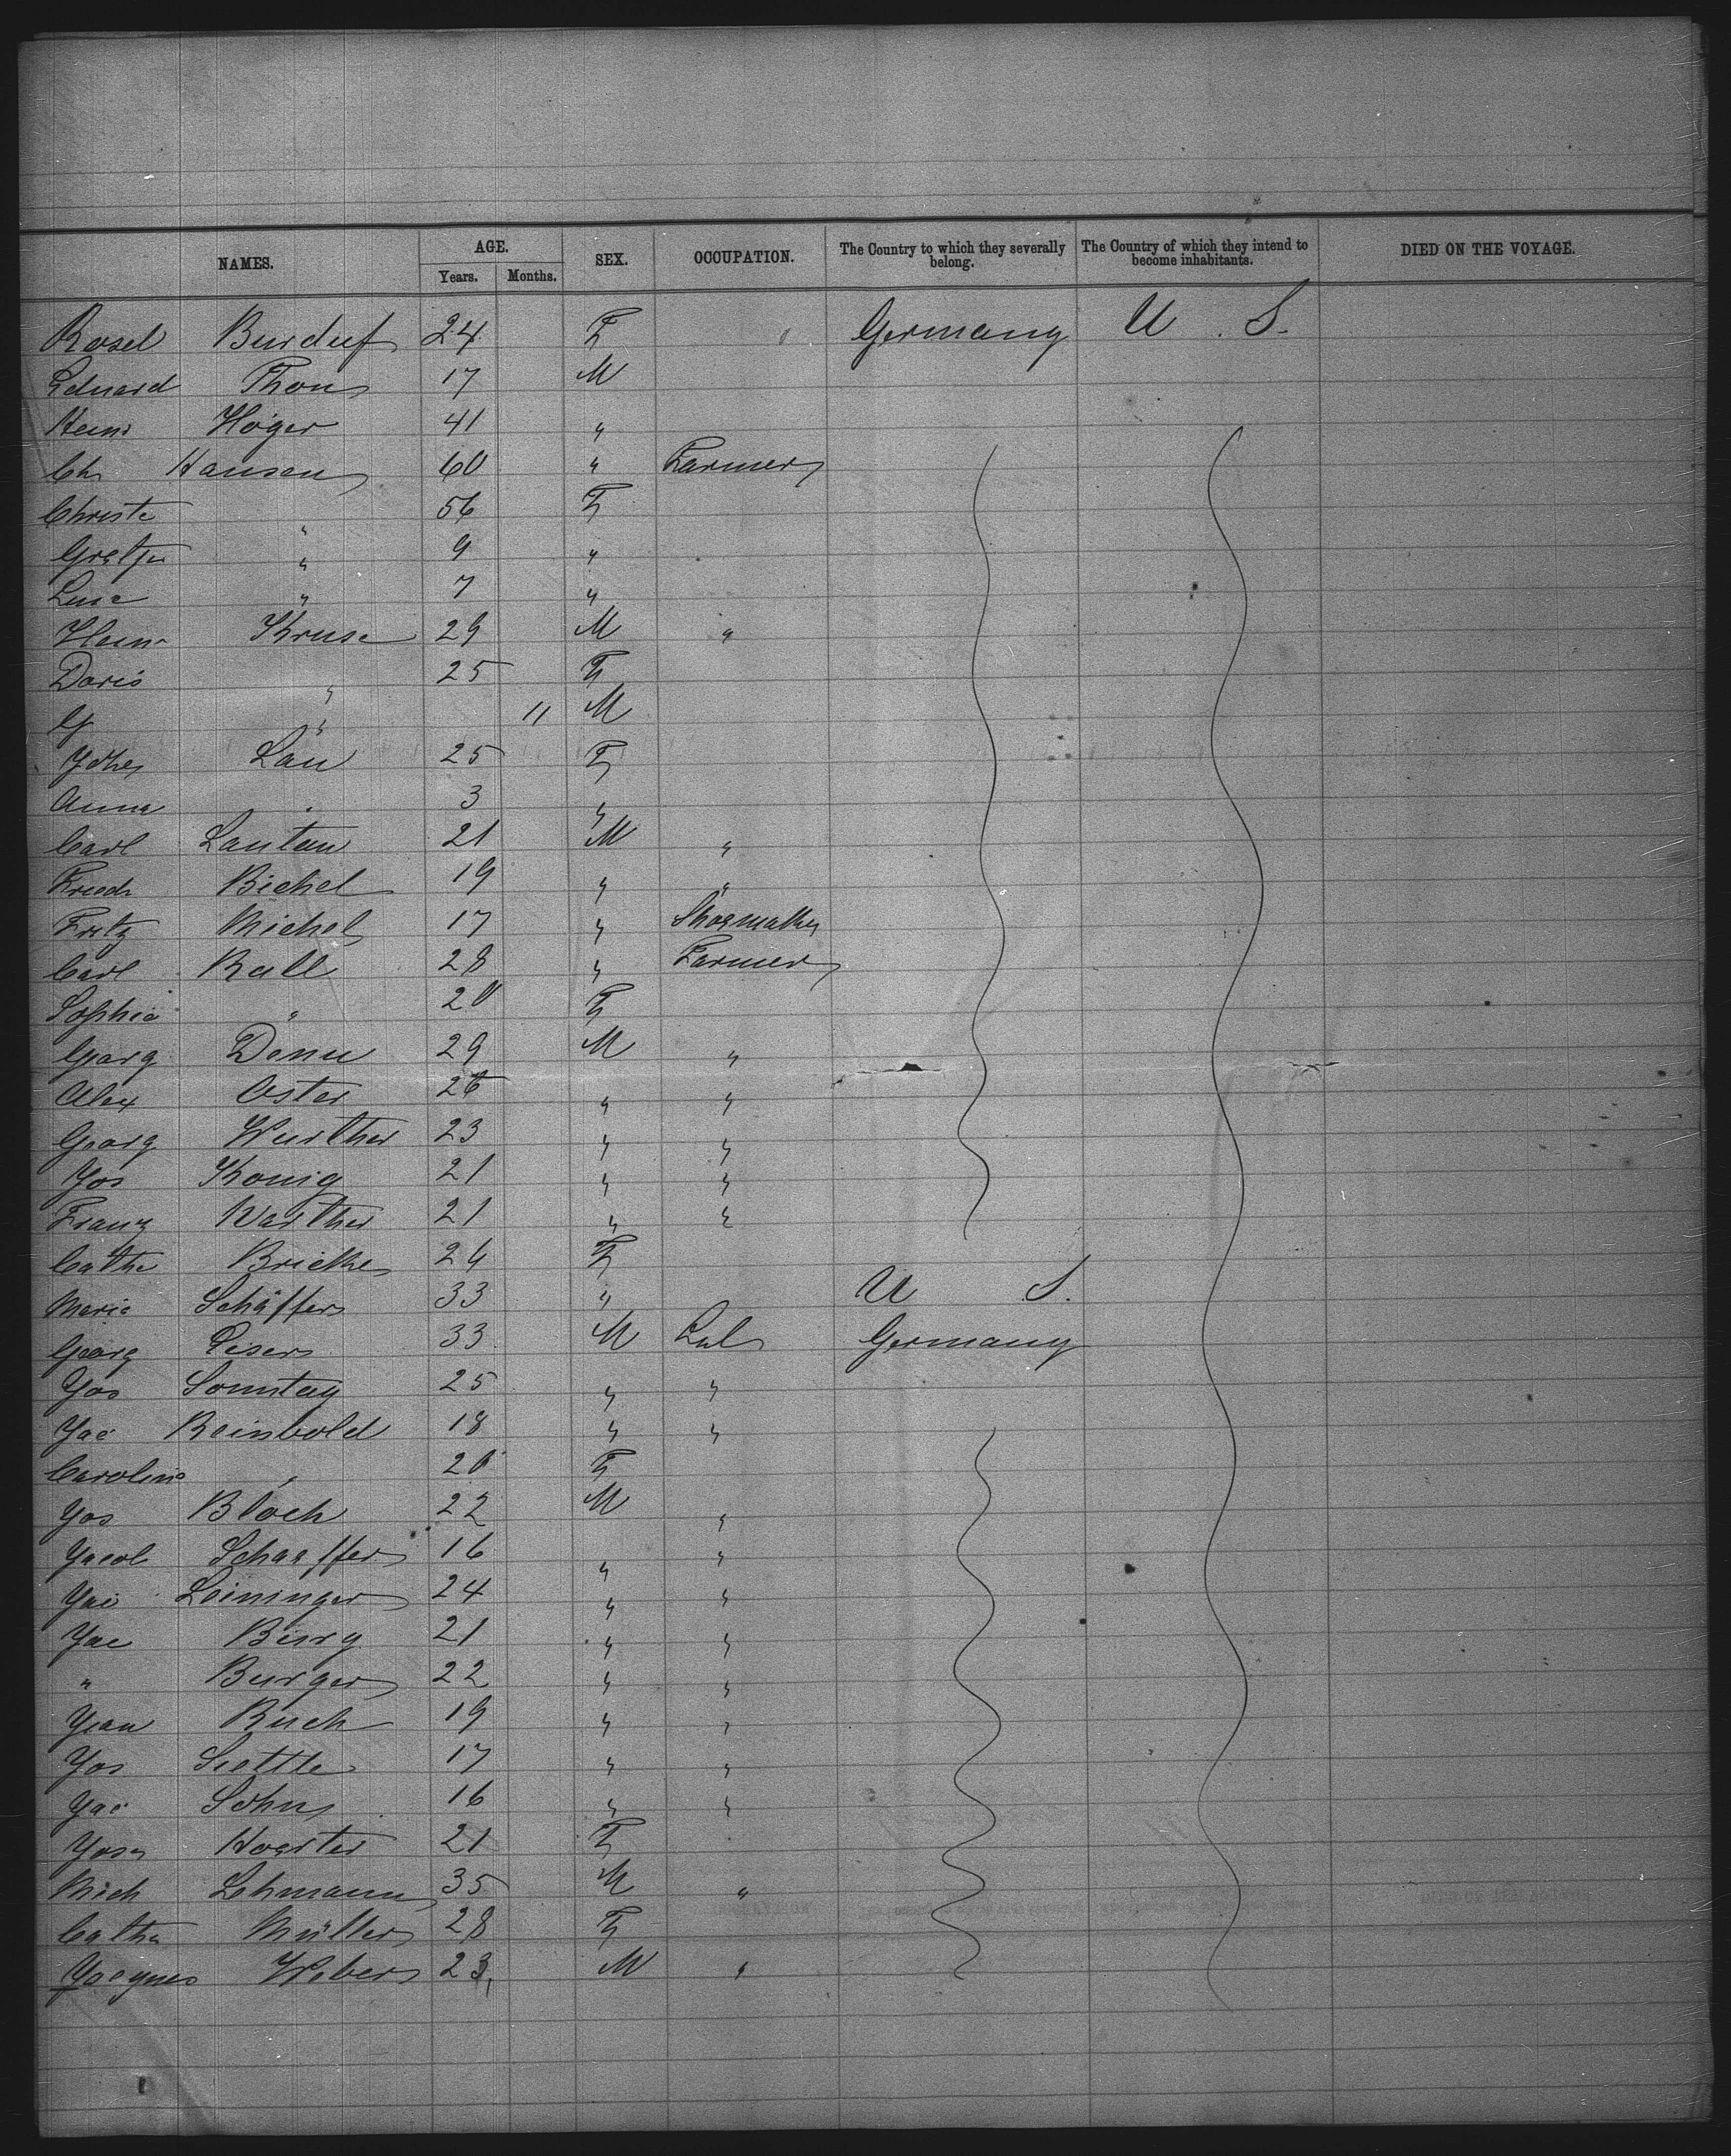 NAMES. AGE. SEX. OCCUPATION. The Country to which they severally belong. The Country of which they intend to become inhabitants. DIED ON THE VOYAGE.
Years. Months.
Rosel Burduf 24 F Germany U. S.
Eduard Thon 17 M
Heinr Höger 41 "
Ch Hansen 60 " Farmer
Christe " 56 F
Gretje " 9 "
Line " 7 "
Heinr Kruse 29 M "
Doris " 25 F
G " 11 M
Lau 25 F
Anna " 3 "
Carl Lantau 21 M "
Friedr Bichel 19 " "
Fritz Michel 17 " Shoemaker
Carl Rall 28 " Farmer
Sophie " 20 F
Georg Denu 29 M "
Alex Oster 26 " "
Georg Wurther 23 " "
Jos Konig 21 " "
Franz Warther 21 " "
Cathe Bricke 24 F
Maria Schäffer 33 " U S.
Georg Eiser 33 M Lab Germany
Jos Sonntag 25 " "
Jac Reinbold 18 " "
Caroline " 20 F
Jos Bloch 22 M "
Jacob Schaeffer 16 " "
Jac Leininger 24 " "
Jac Burg 21 " "
" Burger 22 " "
Jean Ruch 19 " "
Jos Siettle 17 " "
Jac Sohn 16 " "
Hoerter 21 F
Mich Lehmann 35 M "
Catha Müller 28 F
Jacques Weber 23 M "